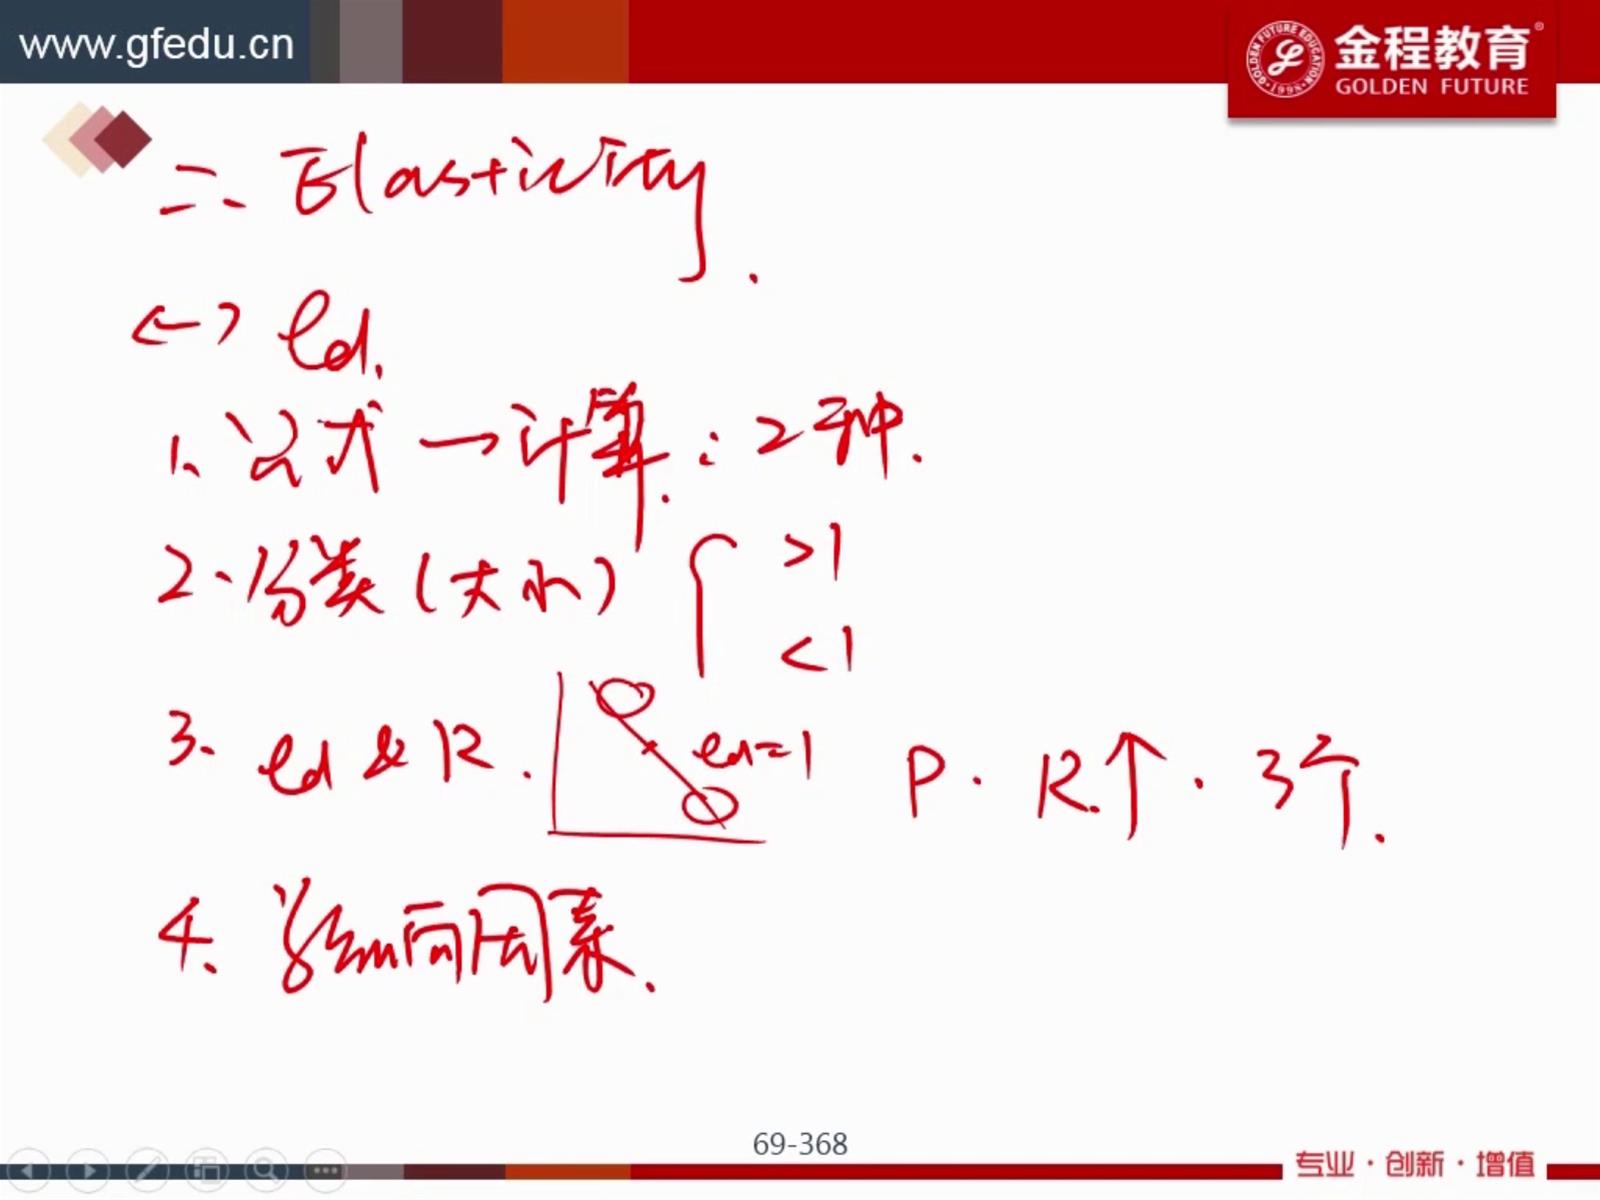 www.gfedu.cn
金程教育®
GOLDEN FUTURE
GOLDEN FUTURE EDUCATION · 1998 ·
二、Elasticity.
<一> ed.
1、公式 → 计算 : 2种.
2、分类 (大小) { >1
<1
3、ed & R. ed=1 P. R↑. 3个.
4、影响因素.
69-368
专业·创新·增值